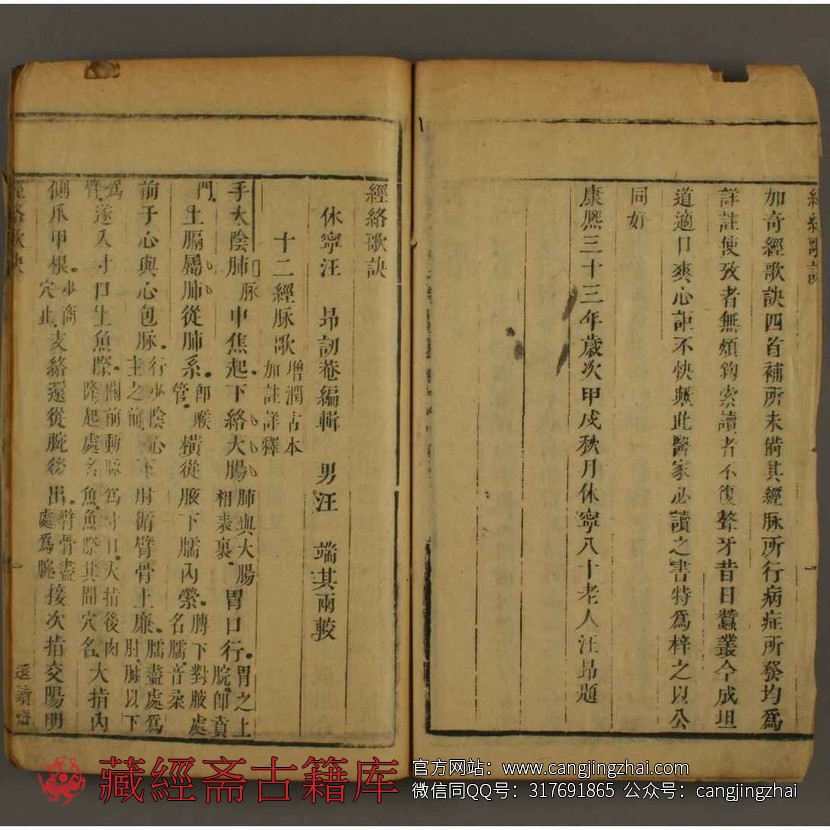 加奇經歌訣四首補所未備其經脉所行病症所發均爲
詳註使攷者無煩鈎索讀者不復聱牙昔日蠶叢今成坦
道適口爽心詎不快與此醫家必讀之書特爲梓之以公
同好
康熙三十三年歲次甲戌秋月休寧八十老人汪昂題
經絡歌訣
休寧汪 昂訒菴編輯 男汪 端其兩較
十二經脉歌 增潤古本 加註詳釋
手太陰肺脉中焦起下絡大腸肺與大腸相表裏。胃口行。胃之上脘即賁
門。上膈屬肺從肺系即喉管。橫從腋下臑內縈。膊下對腋處名臑音柔
前于心與心包脉。行少陰心主之前。下肘循臂骨上廉。臑盡處爲肘肘以下
爲臂。遂入寸口上魚際。關前動脉爲寸口。大指後肉隆起處名魚魚際其間穴名。大指內
側爪甲根。少商穴止。支絡還從腕後出。臂骨盡處爲腕。接次指交陽明
經絡歌訣
還讀齋
藏經斋古籍库
官方网站：www.cangjingzhai.com
微信同QQ号：317691865 公众号：cangjingzhai